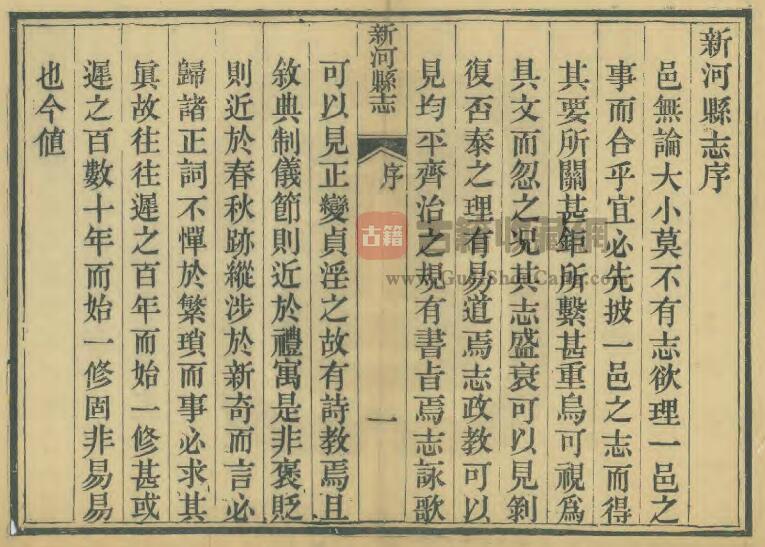 新河縣志序
邑無論大小莫不有志欲理一邑之
事而合乎宜必先披一邑之志而得
其要所關甚鉅所繫甚重烏可視爲
具文而忽之況其志盛衰可以見剝
復否泰之理有易道焉志政教可以
見均平齊治之規有書旨焉志詠歌
新河縣志
序
一
可以見正變貞淫之故有詩教焉且
敘典制儀節則近於禮寓是非褒貶
則近於春秋跡縱涉於新奇而言必
歸諸正詞不憚於繁瑣而事必求其
眞故往往遲之百年而始一修甚或
遲之百數十年而始一修固非易易
也今値
古籍
古籍收藏網